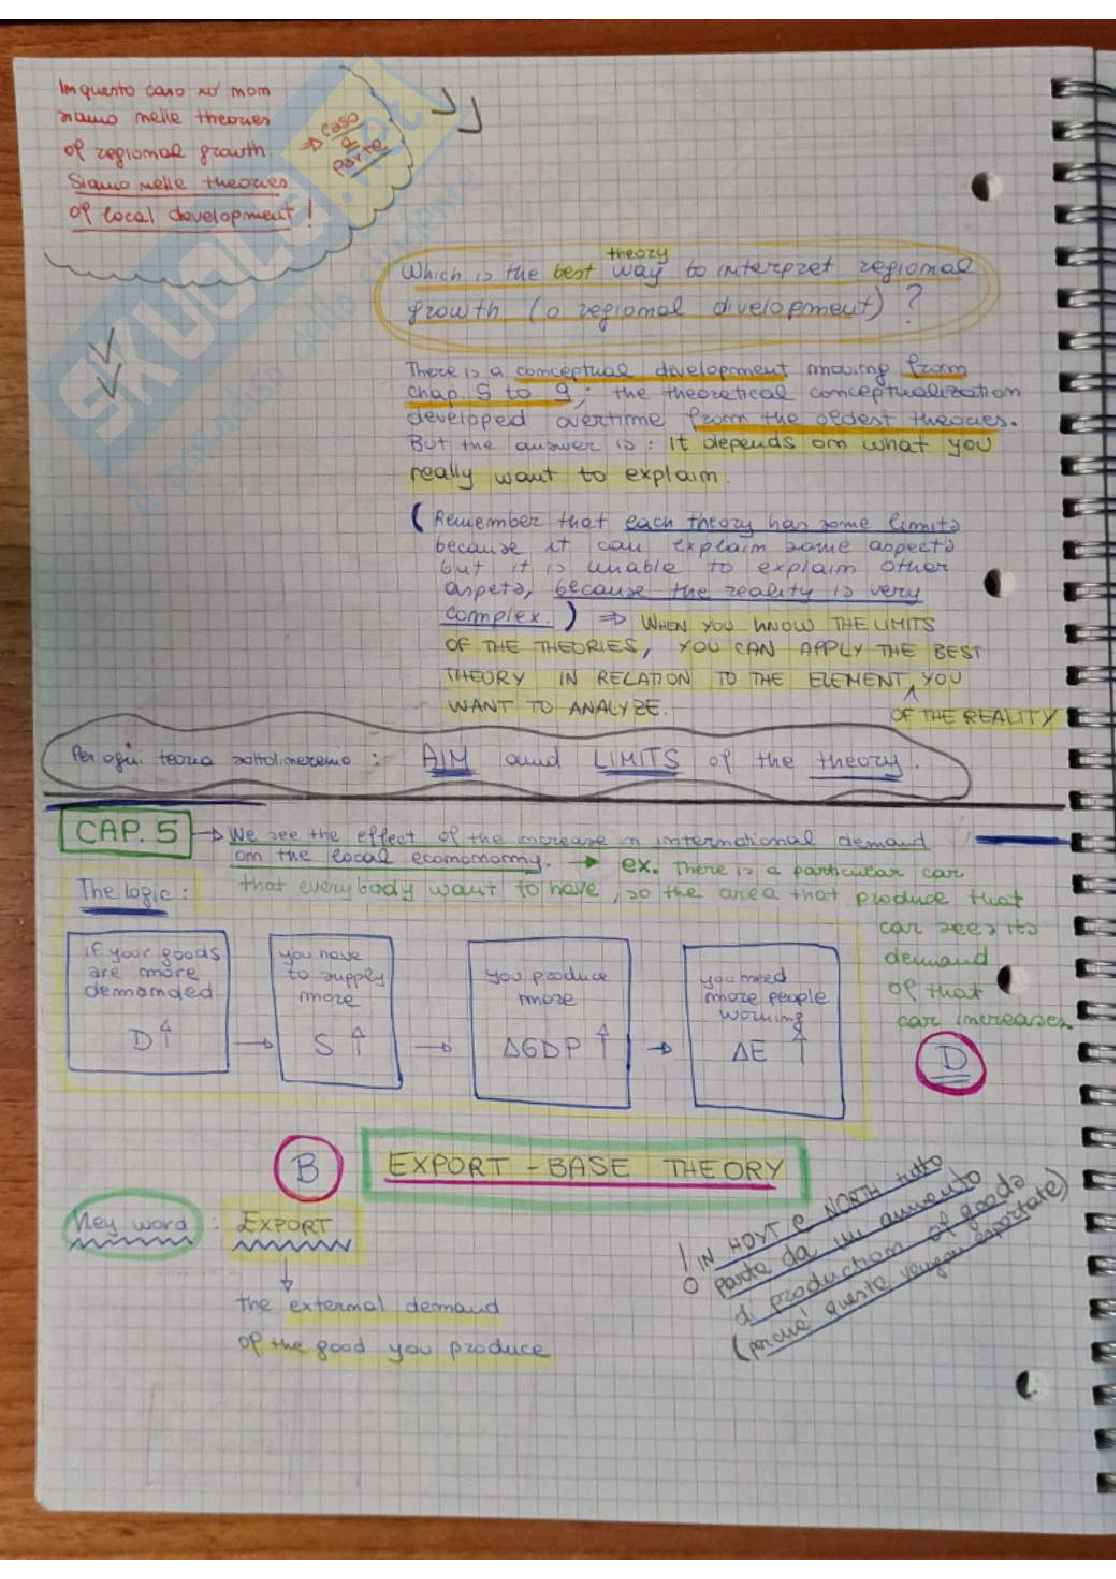 In questo caso noi non
siamo nelle theories
of regional growth.
Siamo nelle theories
of local development!
→ caso
a
parte
theory
Which is the best way to interpret regional
growth (o regional divelopment)?
There is a conceptual development moving from
chap. 5 to 9; the theoretical conceptualization
developed overtime from the oldest theories.
But the answer is: it depends on what you
really want to explain.
(Remember that each theory has some limits
because it can explain some aspects
but it is unable to explain other
aspets, because the reality is very
complex.) ⇒ WHEN YOU KNOW THE LIMITS
OF THE THEORIES, YOU CAN APPLY THE BEST
THEORY IN RELATION TO THE ELEMENT YOU
WANT TO ANALYZE.
OF THE REALITY
Per ogni teoria sottolineremo: AIM and LIMITS of the theory.
CAP. 5 → We see the effect of the increase n international demand
on the local econonomy. → ex. There is a particular car
that everybody want to have, so the area that produce that
car sees its
demand
of that
car increases.
The logic:
if your goods
are more
demanded
D↑
→
you have
to supply
more
S↑
→
you produce
more
ΔGDP↑
→
you need
more people
working
ΔE↑
D
B
EXPORT-BASE THEORY
Key word: EXPORT
↓
the external demand
of the good you produce
! IN HOST e NORTH tutto
parte da un aumento
d production of goods
(perché questa vengon esportate)
SKUOLA.net